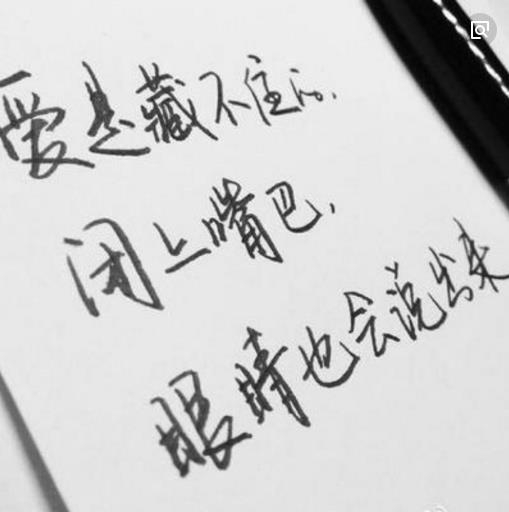 爱是藏不住的.
闭上嘴巴,
眼睛也会说出来